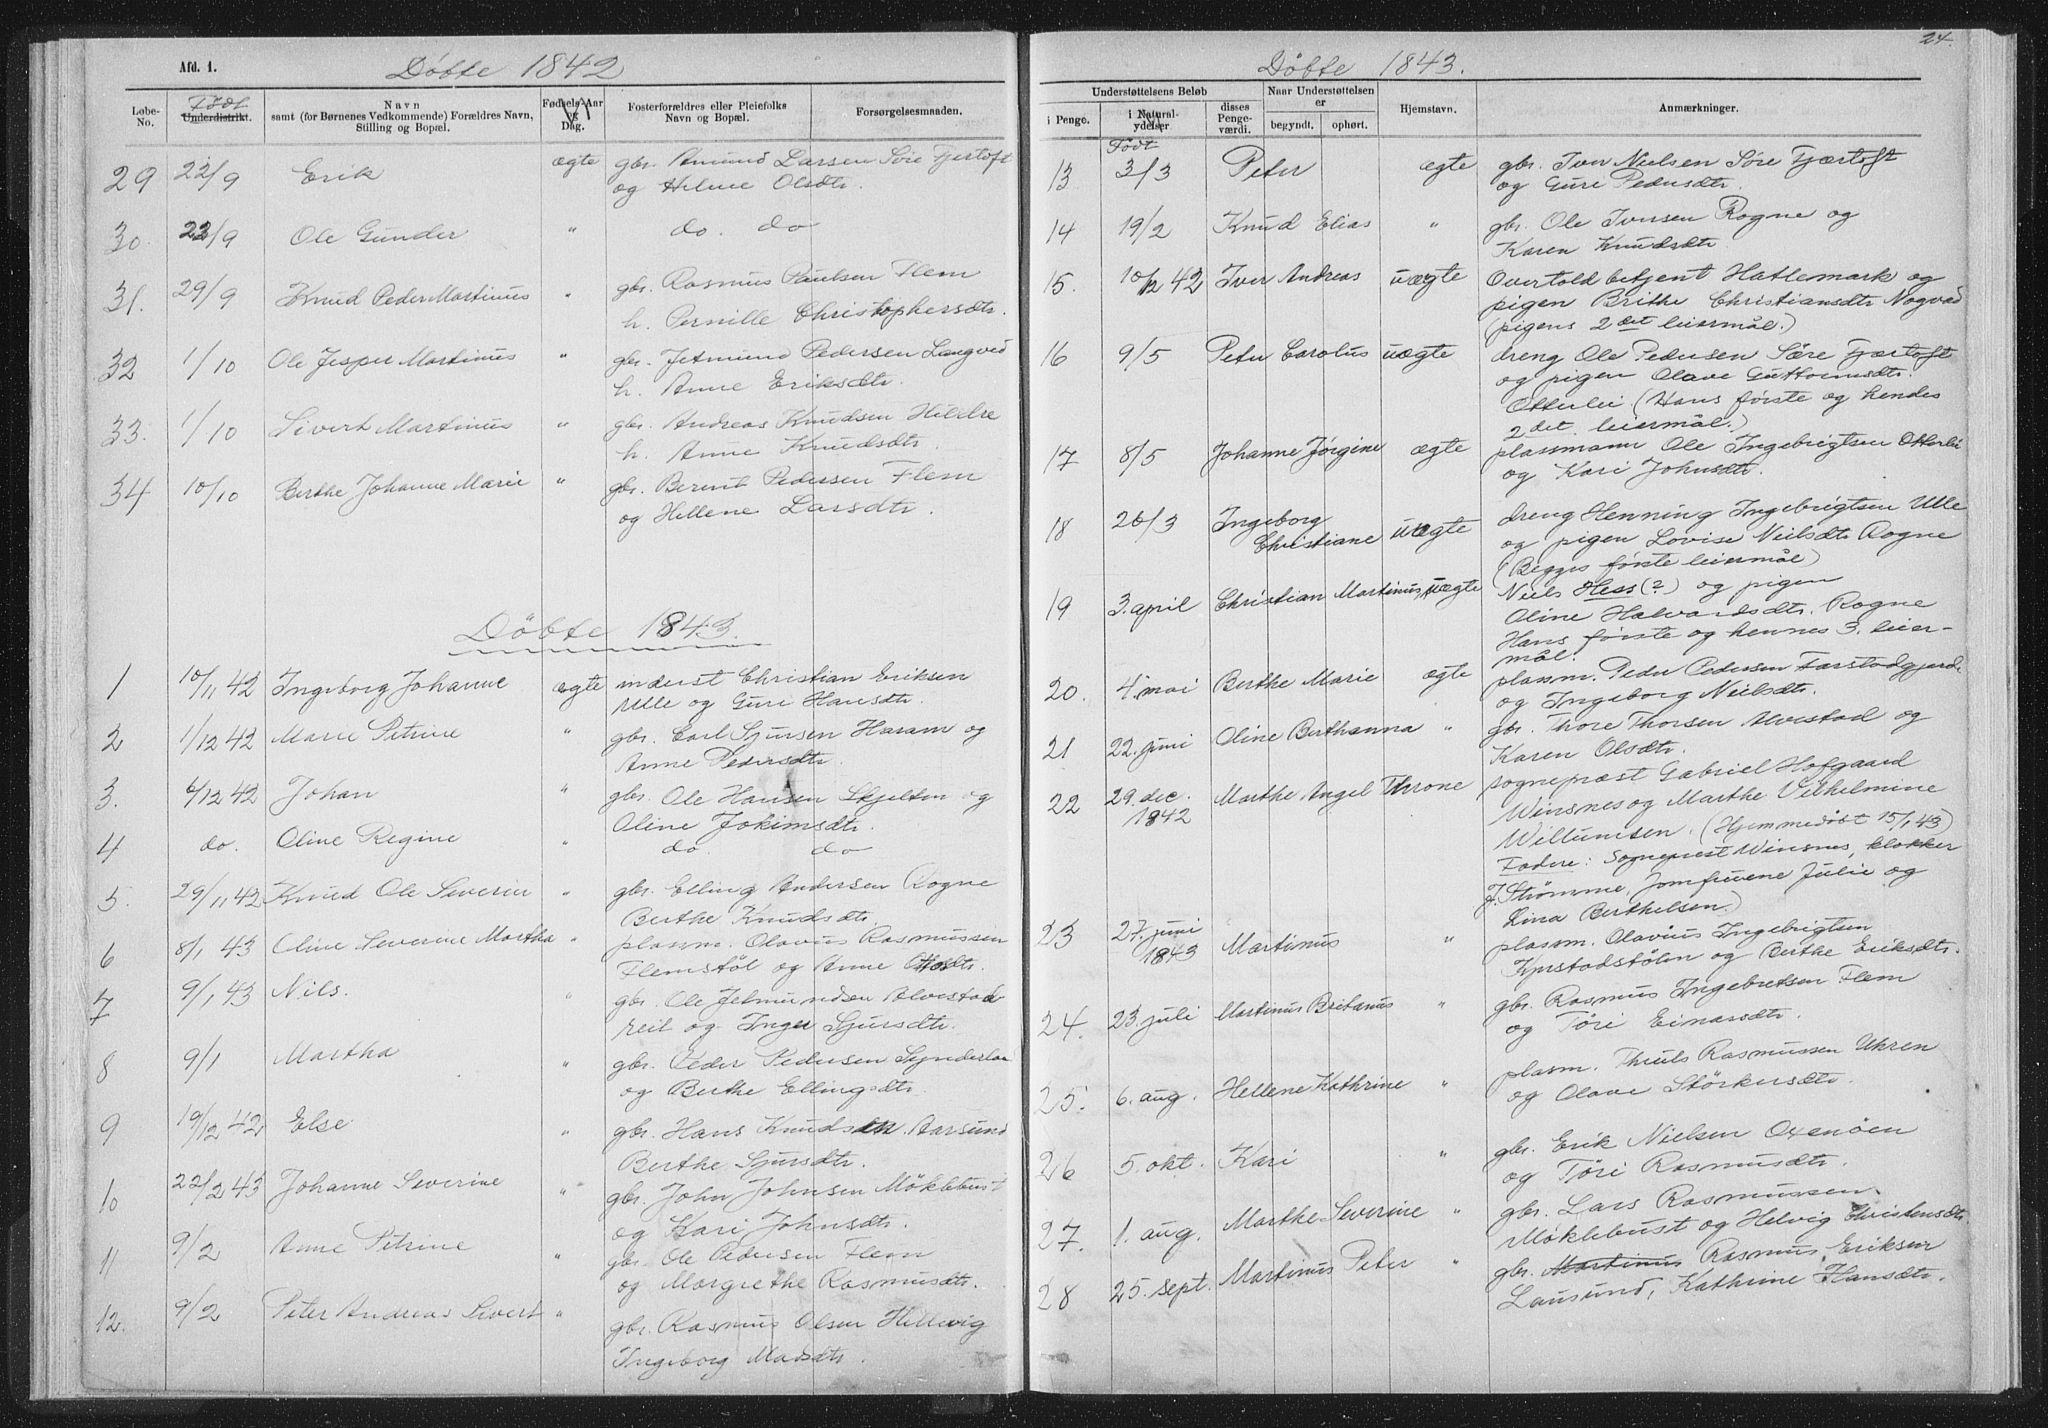 Afd. 1.
Døbte 1842
Løbe-No.
Født
Underdistrikt.
Navn
samt (for Børnenes Vedkommende) Forældres Navn,
Stilling og Bopæl.
Fødsels-Aar
og
Dag.
Fosterforældres eller Pleiefolks
Navn og Bopæl.
Forsørgelsesmaaden.
29 22/9 Erik ægte gbr. Amund Larsen Søre Fjærtoft
og Helene Olsdtr.
30. 22/9 Ole Gunder " do. do
31. 29/9 Knud Peder Martinus " gbr. Rasmus Paulsen Flem
h. Pernille Christophersdtr.
32 1/10 Ole Jesper Martinus " gbr. Jetmund Pedersen Langved
h. Anne Eriksdtr.
33. 1/10 Sivert Martinus " gbr. Andreas Knudsen Hildre
h. Anne Knudsdtr.
34 10/10 Berthe Johanne Marie " gbr. Berent Pedersen Flem
og Hellene Larsdtr.
Døbte 1843.
1 10/11 42 Ingeborg Johanne ægte inderst Christian Eriksen
Ulle og Guri Hansdtr.
2 1/12 42 Marie Petrine " gbr. Carl Sjursen Haram og
Anne Pedersdtr.
3. 4/12 42 Johan " gbr. Ole Hansen Skjelten og
Oline Jokimsdtr.
4 do. Oline Regine " do. do
5. 29/11 42 Knud Ole Severin " gbr. Elling Andersen Rogne
Berthe Knudsdtr.
6 8/1 43 Oline Severine Martha " plassm. Olavus Rasmussen
Flemstøl og Anne Olsdtr.
7 9/1 43 Nils. " gbr. Ole Jetmundsen Alvestad
reit og Inger Sjursdtr.
8 9/1 Martha " gbr. Peder Pedersen Synderlan
og Berthe Ellingsdtr.
9 19/12 42 Else " gbr. Hans Knudsen Aarsund
Berthe Sjursdtr.
10 22/2 43 Johanne Severine " gbr. John Johnsen Møklebust
og Kari Johnsdtr.
11 9/2 Anne Petrine " gbr. Ole Pedersen Flem
og Margrethe Rasmusdtr.
12. 9/2 Peter Andreas Sivert " gbr. Rasmus Olsen Hellevig
Ingeborg Madsdtr.
24.
Døbte 1843.
Understøttelsens Beløb
i Penge.
i Natural-
ydelser
disses
Penge-
værdi.
Naar Understøttelsen
er
begyndt.
ophørt.
Hjemstavn.
Anmærkninger.
Født
13 3/3 Peter ægte gbr. Iver Nielsen Søre Fjærtoft
og Guri Pedersdtr.
14 19/2 Knud Elias " gbr. Ole Iversen Rogne og
Karen Knudsdtr.
15. 10/12 42 Iver Andreas uægte Overtoldbetjent Hatlemark og
pigen Brithe Christiansdtr Nogvad
(pigens 2det leiermål.)
16 9/5 Peter Carolus uægte dreng Ole Pedersen Søre Fjærtoft
og pigen Olave Guttormsdtr.
Otterlei (Hans første og hendes
2det leiermål.)
17 8/5 Johanne Jørgine ægte plassmann Ole Ingebrigtsen Otterlei
og Kari Johnsdtr.
18 26/3 Ingeborg
Christiane uægte dreng Henning Ingebrigtsen Ulle
og pigen Lovise Neilsdtr Rogne
(Begges første leiermål)
19 3. april Christian Martinus, uægte Niels Hess (?) og pigen
Oline Halvardsdtr. Rogne
Hans første og hennes 3. leier-
mål.
20. 4. mai Berthe Marie ægte plassm. Peder Pedersen Farstadgjerd.
og Ingeborg Nielsdtr.
21 22. juni Oline Berthanna " gbr. Thore Thorsen Alvestad og
Karen Olsdtr.
22 29. dec.
1842 Marthe Angel Throne sogneprest Gabriel Hofgaard
Winsnes og Marthe Vilhelmine
Willumsen. (Hjemmedøbt 15/1 43)
Fadere: Sogneprest Winsnes, klokker
J. Strømme, Jomfruene Julie og
Lina Berthelsen.)
23 27. juni
1843 Martinus " plassm. Olavius Ingebrigtsen
Kjerstadstølen og Berthe Eriksdtr.
24. 23. juli Martinus Britanus " gbr. Rasmus Ingebretsen Flem
og Tøri Einarsdtr.
25. 6. aug. Hellene Kathrine " plassm. Thruls Rasmussen Ukren
og Olave Størkersdtr.
26 5. okt. Kari " gbr. Erik Nielsen Oxenøen
og Tøri Rasmusdtr.
27. 1. aug. Marthe Severine " gbr. Lars Rasmussen
Møklebust og Helvig Christensdtr.
28 25. sept. Martinus Peter " gbr. Martinus Rasmus Eriksen
Lausund, Kathrine Hansdtr.